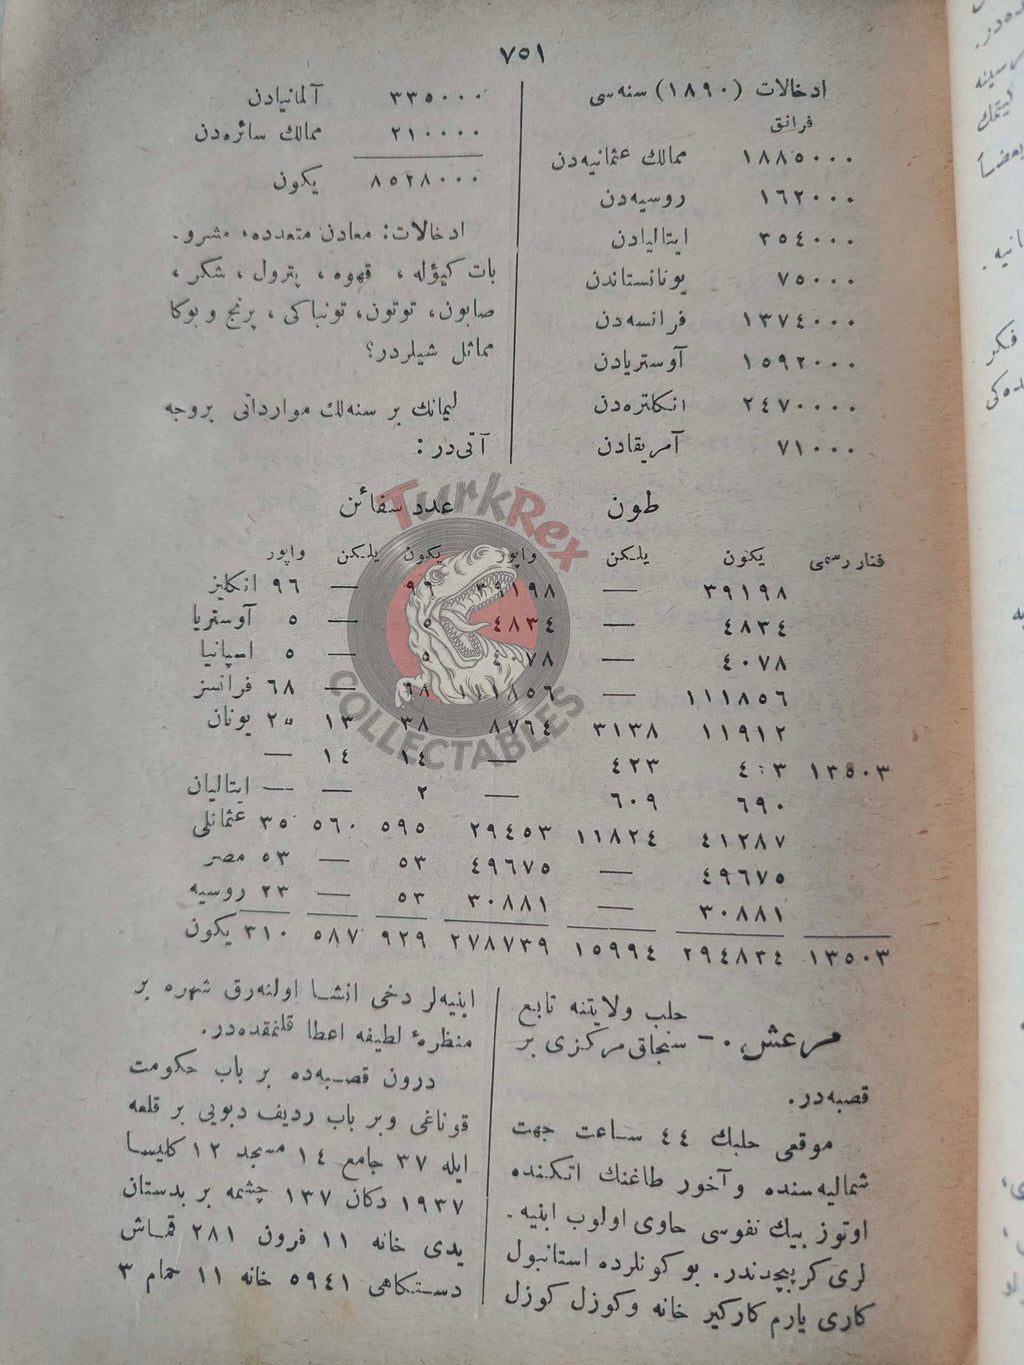 ٧٥١
ادخالات (١٨٩٠) سنه‌سی
فرانق
١٨٨٥٠٠٠ ممالك عثمانیه‌دن
١٦٢٠٠٠ روسیه‌دن
٣٥٤٠٠٠ ایتالیادن
٧٥٠٠٠ یونانستاندن
١٣٧٤٠٠٠ فرانسه‌دن
١٥٩٢٠٠٠ آوستریادن
٢٤٧٠٠٠٠ انكلتره‌دن
٧١٠٠٠ آمریقادن
٣٣٥٠٠٠ آلمانیادن
٢١٠٠٠٠ ممالك سائره‌دن
٨٥٢٨٠٠٠ یكون
ادخالات: معادن متعدده، مشرو-
بات كیؤله، قهوه، پترول، شكر،
صابون، توتون، تونباكی، پرنج و بوكا
مماثل شیلردر؟
لیمانك بر سنه‌لك موارداتی بروجه
آتی‌در:
طون عدد سفائن
فنار رسمی یكون یلكن واپور یكون یلكن واپور
٣٩١٩٨ — ٣٩١٩٨ ٩٦ — ٩٦ انكلیز
٤٨٣٤ — ٤٨٣٤ ٥ — ٥ آوستریا
٤٠٧٨ — ٤٠٧٨ ٥ — ٥ اسپانیا
١١١٨٥٦ — ١١١٨٥٦ ٦٨ — ٦٨ فرانسز
١١٩١٢ ٣١٣٨ ٨٧٦٤ ٣٨ ١٣ ٢٥ یونان
١٣٥٠٣ ٤٠٣ ٤٢٣ — ١٤ ١٤ —
٦٩٠ ٦٠٩ — ٢ — — ایتالیان
٤١٢٨٧ ١١٨٢٤ ٢٩٤٥٣ ٥٩٥ ٥٦٠ ٣٥ عثمانلی
٤٩٦٧٥ — ٤٩٦٧٥ ٥٣ — ٥٣ مصر
٣٠٨٨١ — ٣٠٨٨١ ٥٣ — ٢٣ روسیه
١٣٥٠٣ ٢٩٤٨٣٤ ١٥٩٩٤ ٢٧٨٧٣٩ ٩٢٩ ٥٨٧ ٣١٠ یكون
مرعش، ٠ — حلب ولایتنه تابع
سنجاق مركزی بر
قصبه‌در.
موقعی حلبك ٤٤ ساعت جهت
شمالیه‌سنده و آخور طاغنك اتكنده
اوتوز بیك نفوسی حاوی اولوب ابنیه-
لری كرپیچدندر. بو كونلرده استانبول
كاری یارم كاركیر خانه و كوزل كوزل
ابنیه‌لر دخی انشا اولنه‌رق شهره بر
منظرۀ لطیفه اعطا قلنمقده‌در.
درون قصبه‌ده بر باب حكومت
قوناغی وبر باب ردیف دبویی بر قلعه
ایله ٣٧ جامع ١٤ مسجد ١٢ كلیسا
١٩٣٧ دكان ١٣٧ چشمه بر بدستان
یدی خانه ١١ فرون ٢٨١ قماش
دستكاهی ٥٩٤١ خانه ١١ حمام ٣
TurkRex
COLLECTABLES